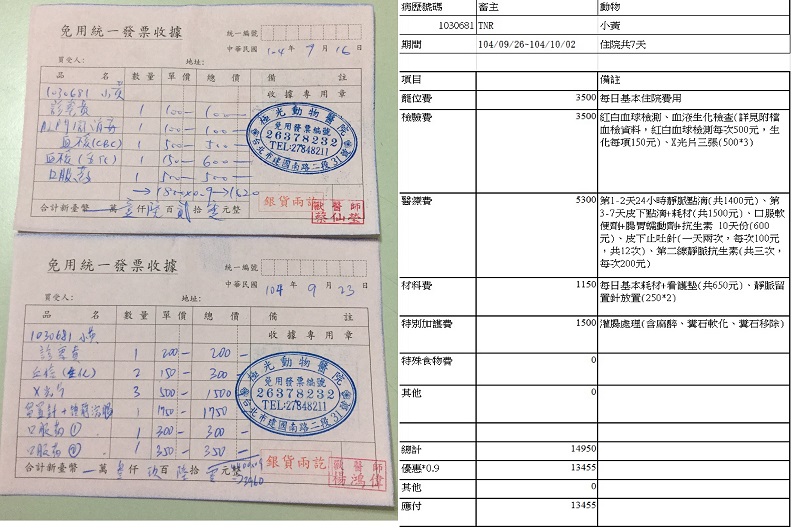 免用統一發票收據
統一編號
中華民國 104 年 9 月 16 日
買受人: 地址:
品名 數量 單價 總價 備註
1030681 小黃 收據專用章
診察費 1 100— 100—
1 100— 100—
血檢(CBC) 1 500— 500—
血檢(生化) 4 150— 600—
口服藥 1 500— 500—
→1800x0.9→1620
合計新臺幣 萬 壹仟 陸百 貳拾 元整
極光動物醫院
免用發票編號
26378232
TEL:27848211
台北市建國南路二段31號
銀貨兩訖
獸醫師
蔡仙瑩
免用統一發票收據
統一編號
中華民國 104 年 9 月 23 日
買受人: 地址:
品名 數量 單價 總價 備註
1030681 小黃 收據專用章
診察費 1 200— 200—
血檢(生化) 2 150— 300—
X光片 3 500— 1500
留置針+ 1 1750 1750
口服藥① 1 300— 300—
口服藥② 1 350— 350—
合計新臺幣 萬 仟 百 陸拾 元整
極光動物醫院
免用發票編號
26378232
TEL:27848211
台北市建國南路二段31號
銀貨兩訖
獸醫師
楊鴻偉
病歷號碼 畜主 動物
1030681 TNR 小黃
期間 104/09/26~104/10/02 住院共7天
項目 備註
籠位費 3500 每日基本住院費用
檢驗費 3500 紅白血球檢測、血液生化檢查(詳見附檔
血檢資料，紅白血球檢測每次500元，生
化每項150元)、X光片三張(500*3)
醫療費 5300 第1-2天24小時靜脈點滴(共1400元)、第
3-7天皮下點滴+耗材(共1500元)、口服軟
便劑+腸胃蠕動劑+抗生素 10天份(600
元)、皮下止吐針(一天兩次，每次100元
，共12次)、第二線靜脈抗生素(共三次，
每次200元)
材料費 1150 每日基本耗材(看護墊(共650元)、靜脈留
置針放置(250*2)
特別加護費 1500 灌腸處理(含麻醉、糞石軟化、糞石移除)
特殊食物費 0
其他 0
總計 14950
優惠*0.9 13455
其他 0
應付 13455